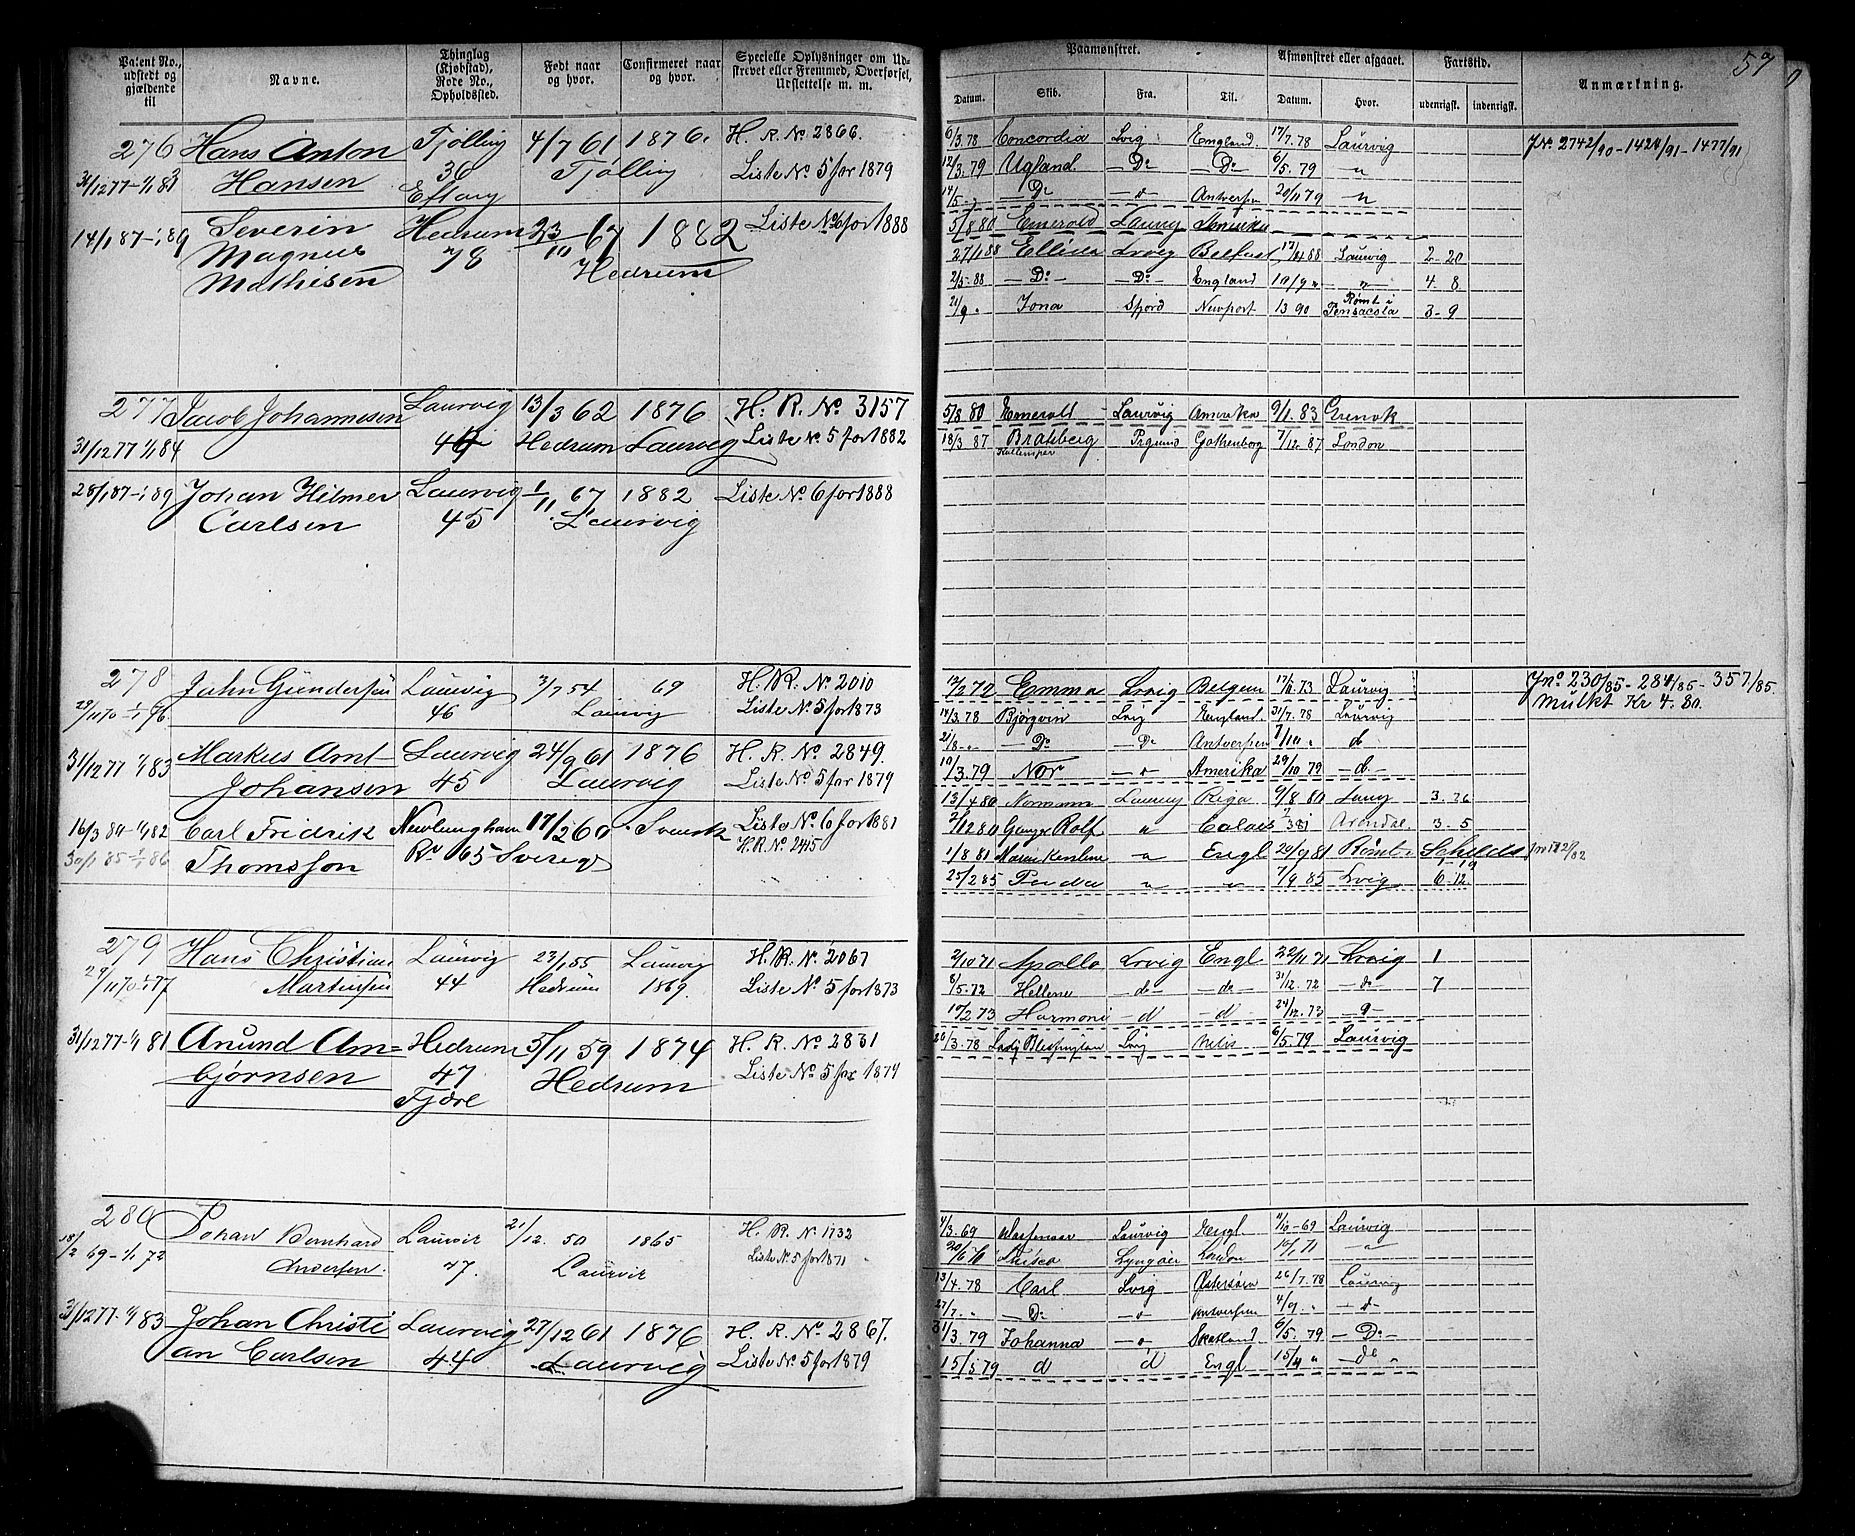 Patent No., udstedt og gjældende til
Navne.
Thinglag (Kjøbstad), Rode No., Opholdssted.
Født naar og hvor.
Confirmeret naar og hvor.
Specielle Oplysninger om Udskrevet eller Fremmed, Overførsel, Udslettelse m. m.
Paamønstret.
Datum.
Skib.
Fra.
Til.
Afmønstret eller afgaaet.
Datum.
Hvor.
Fartstid.
udenrigsk.
indenrigsk.
Anmærkning.
57
276 Hans Anton Tjølling 4/7 61 1876. H. R. No 2866.
31/12 77 Hansen 36 Tjølling Liste No 5 for 1879
Eftang
14/1 87 Severin Hedrum 23/11 67 1882 Liste No 6 for 1888
Magnus 78 Hedrum
Mathisen
6/3.78 Concordia Lvig England 17/7.78 Laurvig
12/3.79 Ugland Do Do 6/5.79
Do Antwerpen 20/11 79
5/8 80 Emerald Laurv
27/1 88 Ellida Lvig Belfast Laurvig 2-20
2/5-88 Do Do England 4-8
21/9 Jona Sfjord Newport 13 90 Rømt i Pensacola 3-9
Jno 2742/90 - 1424/91 - 1477/91
277 Jacob Johannesen Laurvig 13/3 62 1876 H. R. No 3157
31/12 77 1/1 84 Hedrum Laurvig Liste No 5 for 1882
28/1 87 - 1/1 89 Johan Hilmer Laurvig 1/11 67 1882 Liste No 6 for 1888
Carlsen 45 Laurvig
5/8 80 Emerald Laurvig Amerika 9/1.83
18/3 87 Bratsberg Prgrund Gothenborg 7/12.87 London
278 John Gundersen Laurvig 3/7 54 69 H. R. No 2010
46 Laurvig Liste No 5 for 1873
31/12 77 1/1 83 Markus Ant- Laurvig 24/9 61 1876 H. R. No 2849.
Johansen 45 Laurvig Liste No 5 for 1879
16/3 80 1/1 82 Carl Fridrik 17/2 60 Svensk Liste No 6 for 1881
30/1 85 - 1/1 86 Thomsson Ro 65 Sverig H. R. No 2415
12/2 72 Emma Lvig Belgien 17/6.73 Laurvig
14/3.78 Bjørgvin Lvig England 31/7.78 Laurvig
21/8 Do Do Antverpen d
10/3.79 Nor Amerika 29/10.79 d
13/4 80 Normann Laurv Riga 9/8 80 3.26
2/12 80 Ganger Rolf Calais Arendal 3-5
1/8 81 Engl 29/9 81 Rømt
25/2 85 7/9 85 Lvig 6-12
Jno 230/85 - 284/85 - 357/85
Mulkt Kr 4.80.
279 Hans Christian Laurvig 23/1 55 Laurvig H. R. No 2067
Martinsen 44 Hedrum 1869. Liste No 5 for 1873
31/12 77 1/1 81 Anund Am= Hedrum 5/11 59 1874 H. R. No 2831
bjørnsen 47 Hedrum Liste No 5 for 1879
Tjøre
2/10 71 Apollo Lvig Engl 22/11 71 Lvig 1
8/5.72 Hellene do do 31/12.72 do 7
10/2 73 Harmoni d d 24/12.73
26/3.78 Lady Lvig 6/5.79 Laurvig
280 Johan Bernhard Laurvik 21/12. 50 1865 H. R. No 1732
18/2 69 - 1/1 72 Andersen. 47. Laurvik Liste No 5 for 1871
31/12 77 1/1 83 Johan Christi Laurvig 27/12 61 1876 H. R. No 2867.
an Carlsen 44 Laurvig Liste No 5 for 1879
4/3.69 Laurvig Engl 11/10-69 Laurvig
Lyngør London
13/4.78 Carl Lvig Østersøen 26/7.78 Laurvig
27/7. Do Antverpen 4/9 d
31/3.79 Johanna 6/5.79 Do
15/5 79 d d Engl do